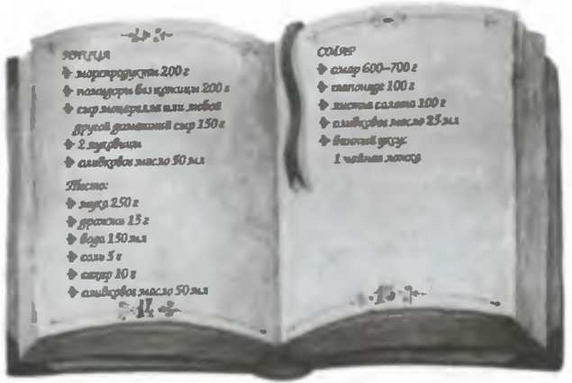 морепродукты 200 г
помидоры без кожицы 200 г
сыр моцарелла или любой
другой домашний сыр 150 г
2 луковицы
оливковое масло 50 мл
Тесто:
мука 250 г
дрожжи 15 г
вода 150 мл
соль 5 г
сахар 10 г
оливковое масло 50 мл
14
ОМАР
омар 600–700 г
100 г
листья салата 100 г
оливковое масло 25 мл
винный уксус
1 чайная ложка
15